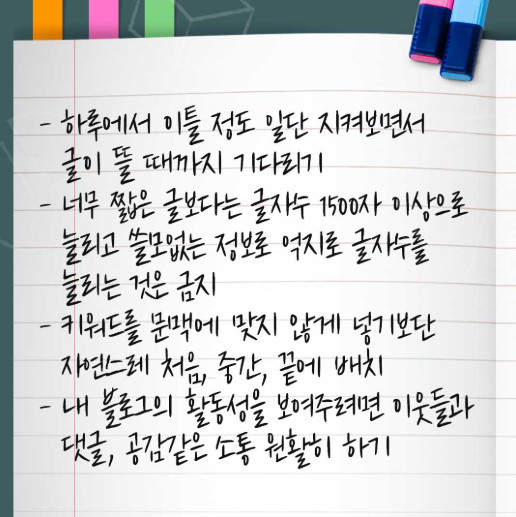 - 하루에서 이틀 정도 일단 지켜보면서
글이 뜰 때까지 기다리기
- 너무 짧은 글보다는 글자수 1500자 이상으로
늘리고 쓸모없는 정보로 억지로 글자수를
늘리는 것은 금지
- 키워드를 문맥에 맞지 않게 넣기보단
자연스레 처음, 중간, 끝에 배치
- 내 블로그의 활동성을 보여주려면 이웃들과
댓글, 공감같은 소통 원활히 하기